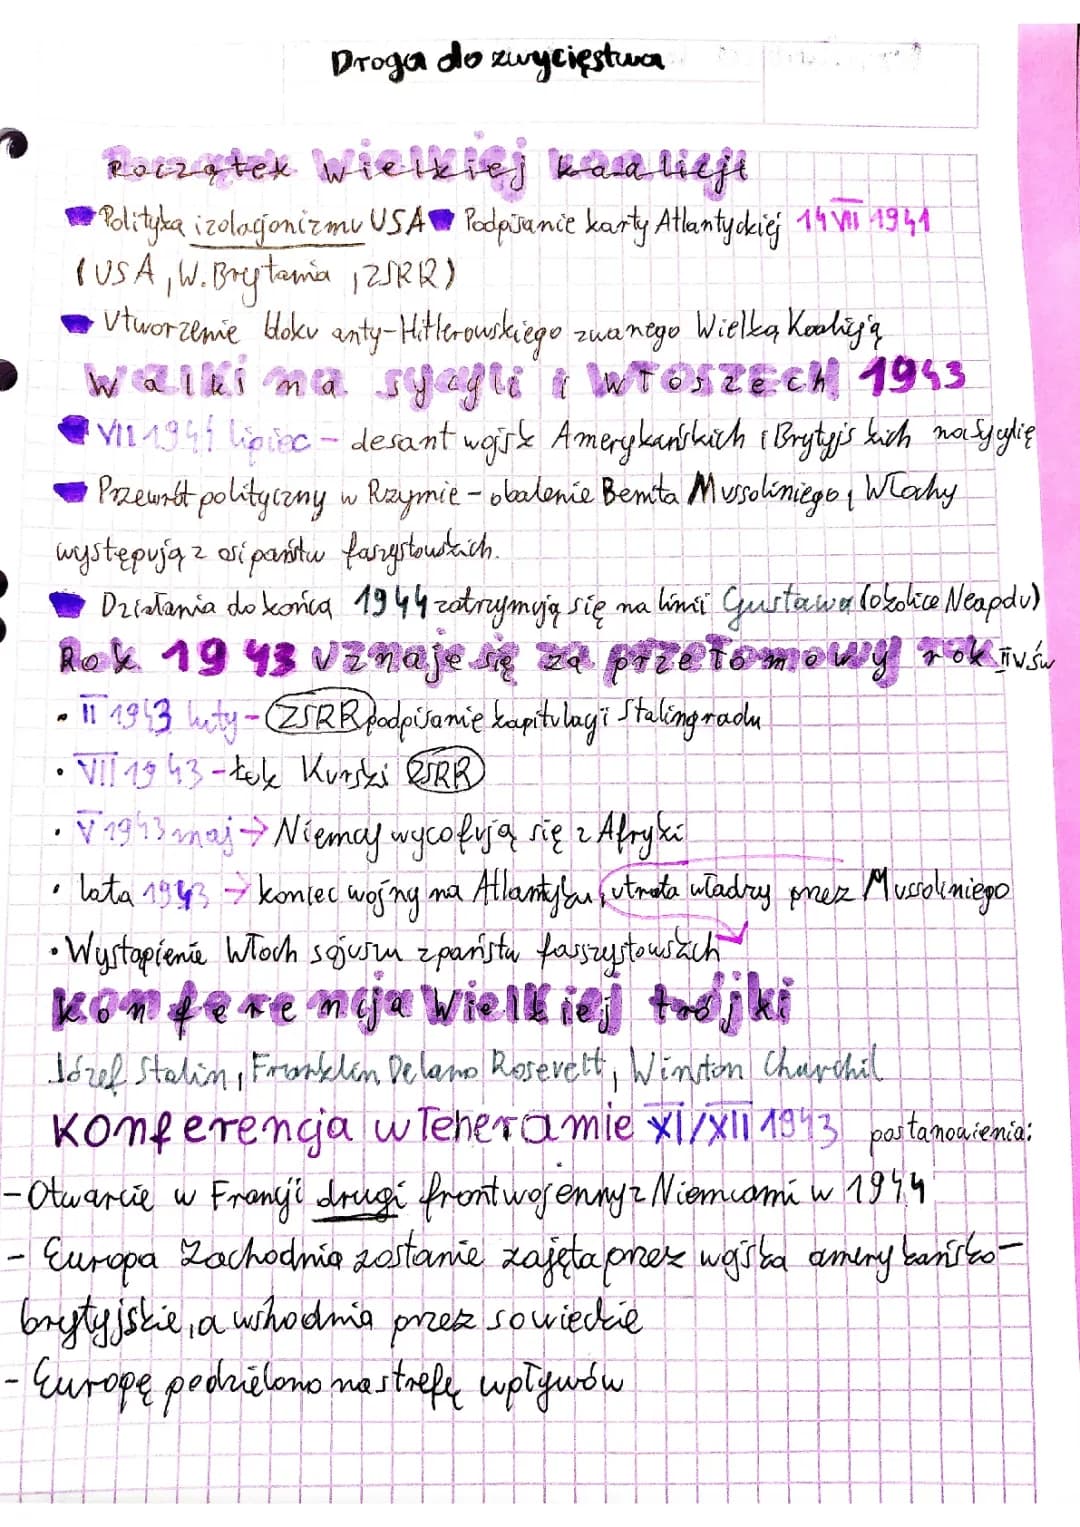 Droga do zwycięstwa
Początek Wielkiej koalicji
Polityka izolacjonizmu USA Podpisanie karty Atlantyckiej 14 VII 1941
(USA, W. Brytania, ZSRR)
Utworzenie bloku anty-Hitlerowskiego zwanego Wielką Koalicją
Walki na sycyli i Włoszech 1943
VII 1941 lipiec - desant wojsk Amerykańskich i Brytyjskich na Sycylię
Przewrót polityczny w Rzymie - obalenie Benita Mussoliniego, Włochy
występują z osi państw faszystowskich.
Działania do końca 1944 zatrzymują się na linii Gustawa (okolice Neapolu)
Rok 1943 uznaje się za przełomowy rok II wŚw
• II 1943 luty - ZSRR podpisanie kapitulacji Stalingradu
• VII 1943 - łuk Kurski ZSRR
• V 1943 maj → Niemcy wycofują się z Afryki
• lata 1943 → koniec wojny na Atlantyku, utrata władzy przez Mussoliniego
• Wystąpienie Włoch sojuszu z państw faszzystowskich
Konferencja Wielkiej trójki
Józef Stalin, Franklin Delano Rosevelt, Winston Churchil
Konferencja w Teheranie XI/XII 1943 postanowienia:
- Otwarcie w Francji drugi front wojenny z Niemcami w 1944
- Europa Zachodnia zostanie zajęta przez wojska amerykańsko-
brytyjskie, a wshodnia przez sowieckie
- Europę podzielono na strefę wpływów